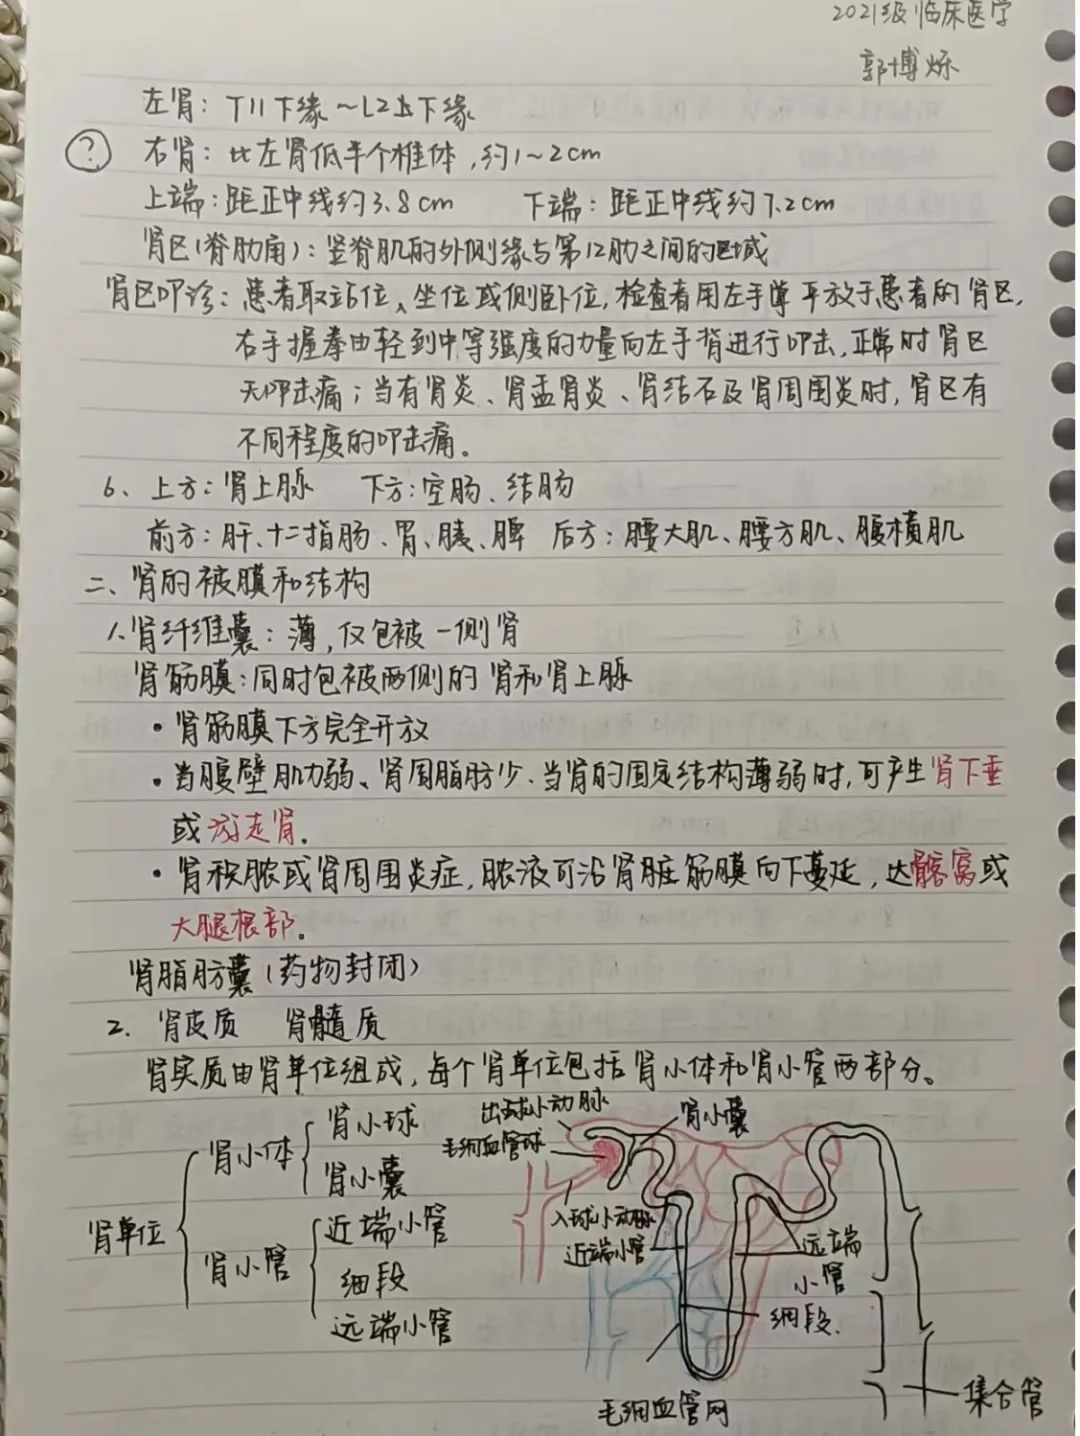 2021级临床医学
郭博烁
左肾：T11下缘～L2上下缘
? 右肾：比左肾低半个椎体，约1～2cm
上端：距正中线约3.8cm 下端：距正中线约7.2cm
肾区(脊肋角)：竖脊肌的外侧缘与第12肋之间的区域
肾区叩诊：患者取站位、坐位或侧卧位，检查者用左手掌平放于患者的肾区，
右手握拳由轻到中等强度的力量向左手背进行叩击，正常时肾区
无叩击痛；当有肾炎、肾盂肾炎、肾结石及肾周围炎时，肾区有
不同程度的叩击痛。
6、上方：肾上腺 下方：空肠、结肠
前方：肝、十二指肠、胃、胰、脾 后方：腰大肌、腰方肌、腹横肌
二、肾的被膜和结构
1、肾纤维囊：薄，仅包被一侧肾
肾筋膜：同时包被两侧的肾和肾上腺
·肾筋膜下方完全开放
·当腹壁肌力弱、肾周脂肪少、当肾的固定结构薄弱时，可产生肾下垂
或游走肾.
·肾积脓或肾周围炎症，脓液可沿肾脏筋膜向下蔓延，达髂窝或
大腿根部。
肾脂肪囊(药物封闭)
2. 肾皮质 肾髓质
肾实质由肾单位组成，每个肾单位包括肾小体和肾小管两部分。
肾单位
肾小体
肾小球
肾小囊
肾小管
近端小管
细段
远端小管
出球小动脉
毛细血管球
肾小囊
入球小动脉
近端小管
远端
小管
细段.
毛细血管网
集合管